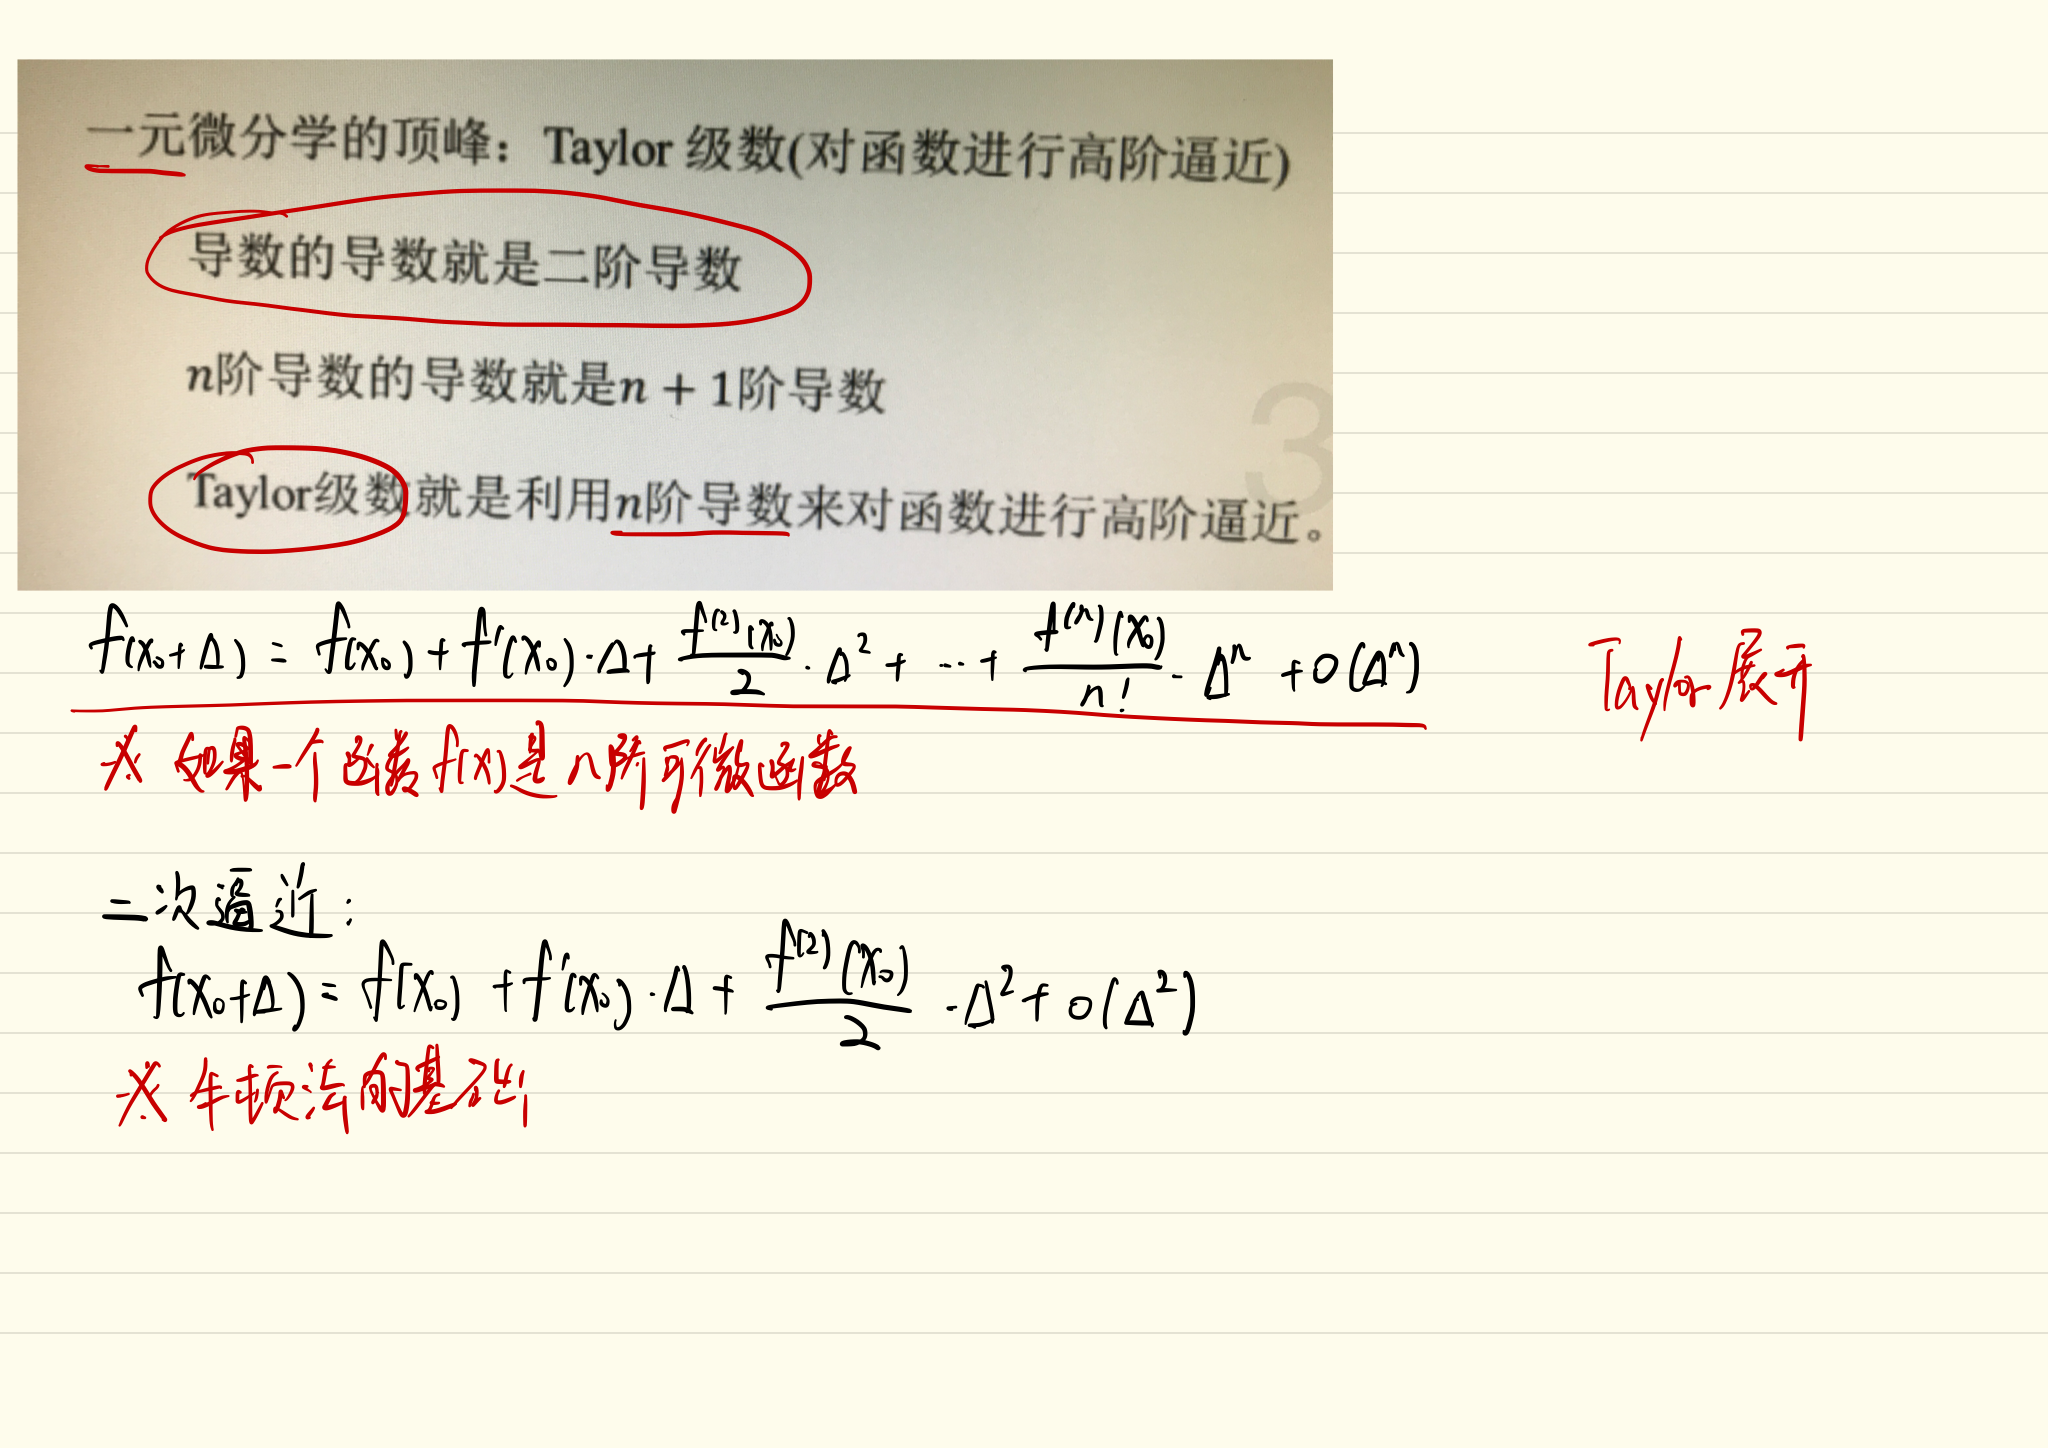 一元微分学的顶峰：Taylor 级数(对函数进行高阶逼近)
导数的导数就是二阶导数
n阶导数的导数就是n + 1阶导数
3
Taylor级数就是利用n阶导数来对函数进行高阶逼近。
f(x₀+Δ) = f(x₀) + f'(x₀)·Δ + \frac{f⁽²⁾(x₀)}{2}·Δ² + ··· + \frac{f⁽ⁿ⁾(x₀)}{n!}·Δⁿ + o(Δⁿ) Taylor 展开
※ 如果一个函数 f(x) 是 n阶可微函数
二次逼近：
f(x₀+Δ) = f(x₀) + f'(x₀)·Δ + \frac{f⁽²⁾(x₀)}{2}·Δ² + o(Δ²)
※ 牛顿法的基础